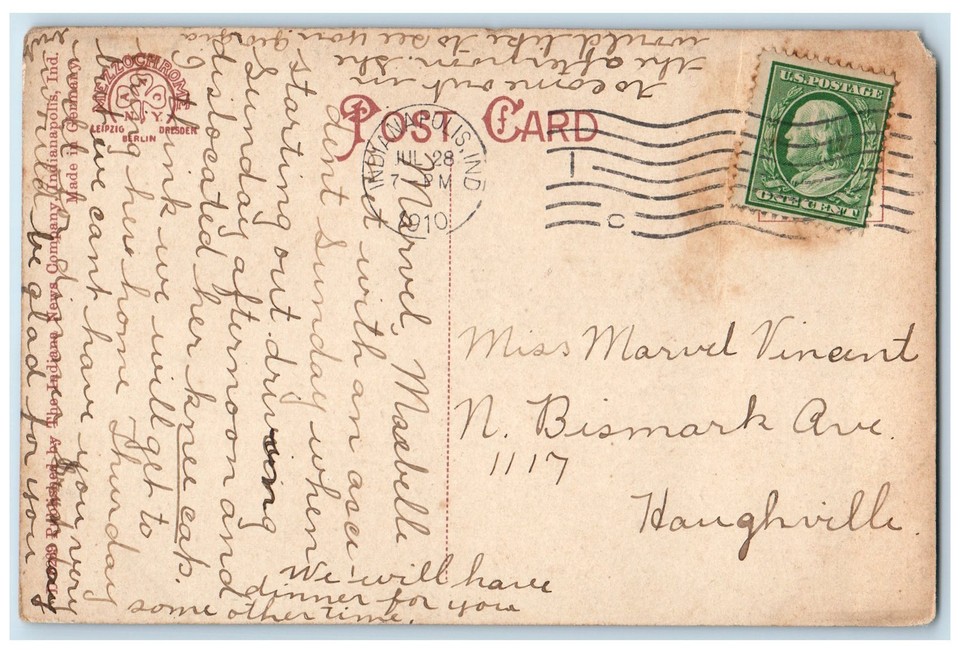 POST CARD
MEZZOCHROME
N.Y.
LEIPZIG DRESDEN
BERLIN
Published by The Indiana News Company, Indianapolis, Ind.
Made in Germany.
U.S. POSTAGE
ONE CENT
INDIANAPOLIS, IND
JUL 28
7- PM
1910
I
C
Miss Marvel Vincent
N. Bismark Ave.
1117
Haughville.
Marvel, Maebelle
met with an acci
dent Sunday when
starting out driving
Sunday afternoon and
dislocated her knee cap.
I think we will get to
bring her home Thursday
but we cant have you very
well for dinner
would be glad for you
to come out in
the afternoon. She
would like to see you. Georgia
We will have
dinner for you
some other time.